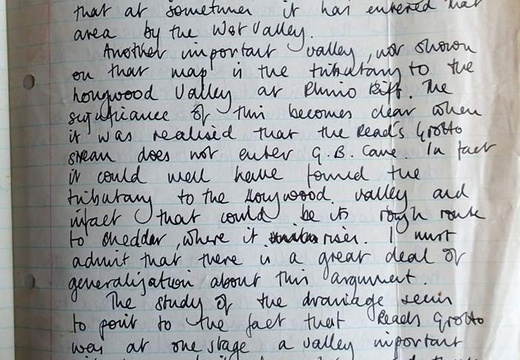 that at sometimes it has entered that
area by the West Valley.
Another important valley, not shown
on that map is the tributary to the
longwood Valley at Rhino Rift. The
significance of this becomes clear when
it was realised that the Reads Grotto
stream does not enter G.B. Cave. In fact
it could well have formed the
tributary to the Longwood valley and
infact that could be its rough route
to Cheddar, where it rises. I must
admit that there is a great deal of
generalization about this argument.
The study of the drainage seems
to point to the fact that Reads Grotto
was at one stage a valley important